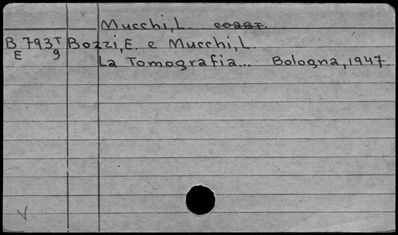 Mucchi, L.
B 793 T Bozzi, E. e Mucchi, L.
E 9 La Tomografia... Bologna, 1947.